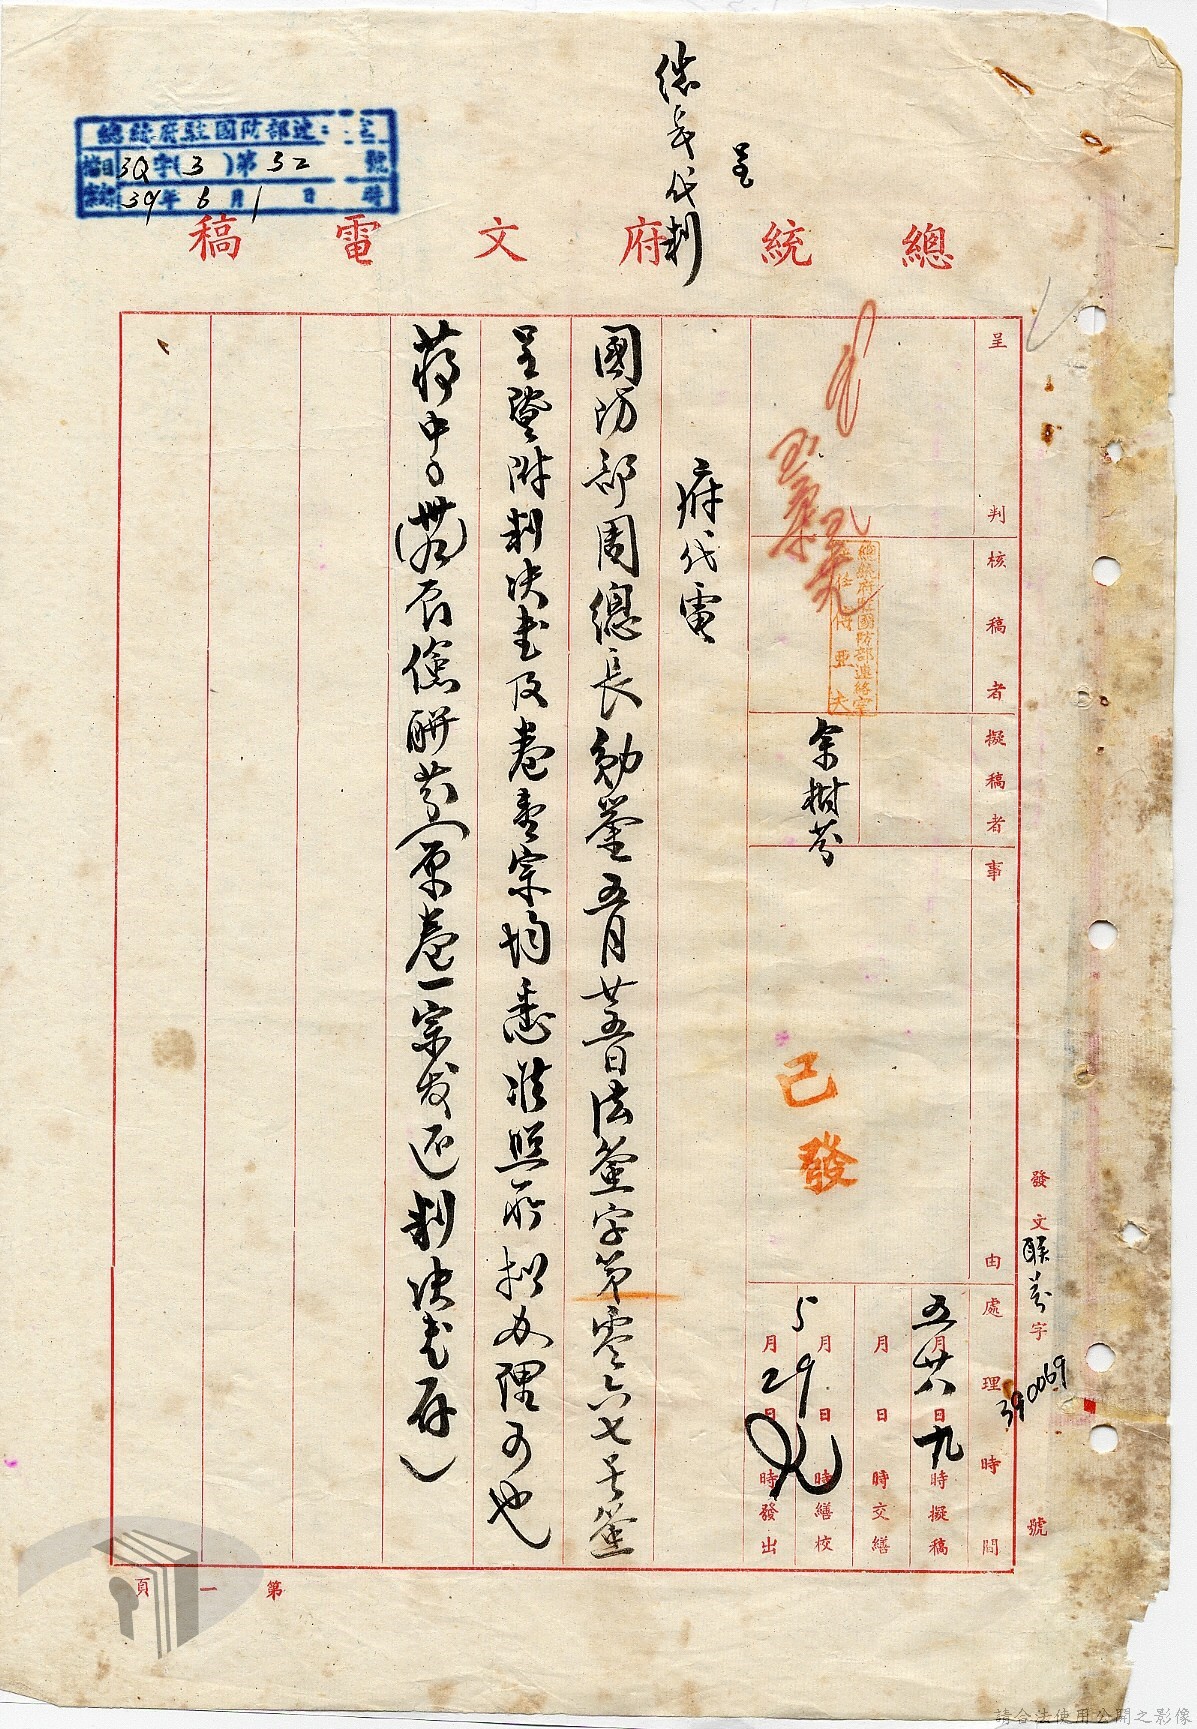 總統府駐國防部連
檔目3Q字(3)第32號
39年6月1日時
呈
代判
總統府文電稿
呈判
核稿者
總統府駐國防部連絡室
主任傅亞夫
擬稿者
余樹芬
事由
已發
發文聯芬字390069號
處理時間
五月廿八日九時擬稿
月日時交繕
月日時繕校
5月29日時發出
府代電
國防部周總長勛鑒五月廿五日法簽字第零六七号簽
呈暨附判决書及卷壹宗均悉准照所拟办理可也
蔣中○(卅九)辰儉聯芬(原卷一宗发还判决书存)
第一頁
請合法使用公開之影像